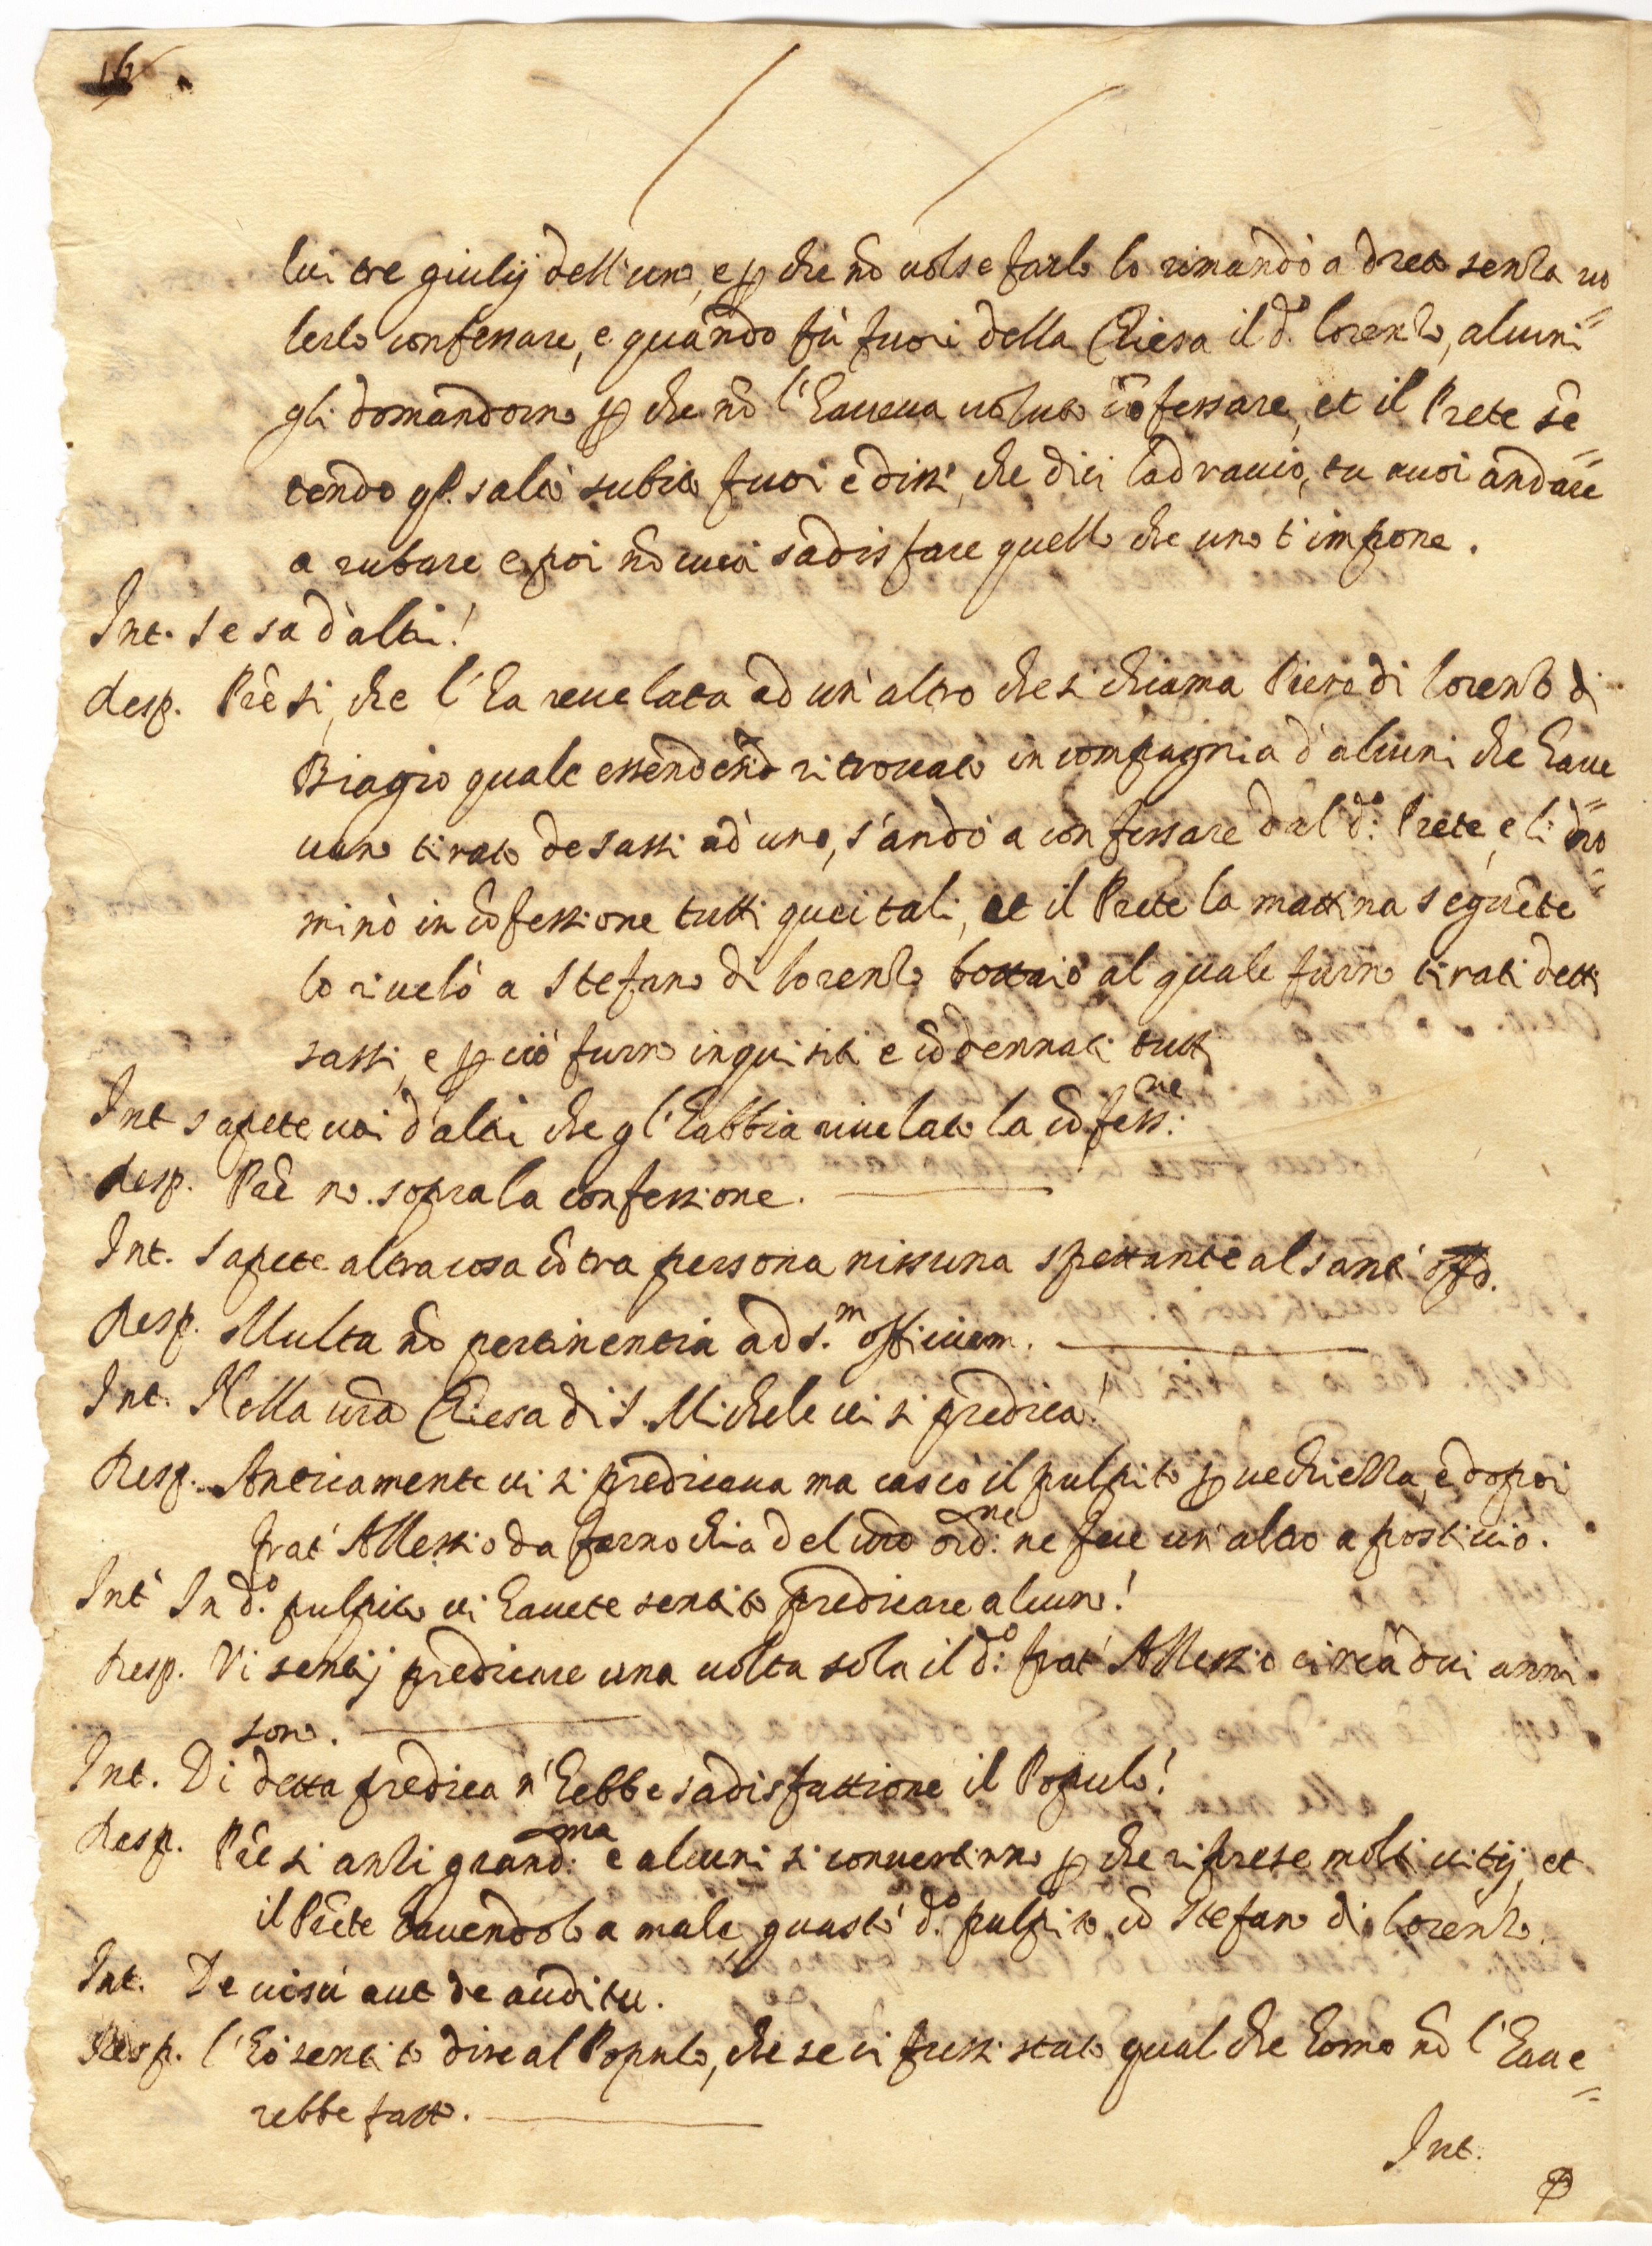 16
lui tre giulij dell'uno, e p che nõ uolse farlo lo rimandò a dreto senza uo=
lerlo confessare, e quando fù fuori della Chiesa il d.º Lorenzo, alcuni
gli domandorno p che nõ l'haueua uoluto cõfessare, et il Prete sẽ=
tendo qſ. saltò subito fuori e dissi, che dici ladraccio, tu uuoi andare
a rubare e poi nõ uuoi sadisfare quello che uno t'impone.
Int. Se sa d'altri!
Resp. Prẽ si, che l'ha reuelata ad un'altro che si chiama Piero di Lorenzo di
Biagio quale essendosi ritrouato in compagnia d'alcuni che haue=
uano tirato de sassi ad uno, s'andò a confessare dal d.º Prete, e li no=
minò in cõfessione tutti quei tali, et il Prete la mattina seguẽte
lo riuelò a Stefano di Lorenzo bottaio al quale furno tirati detti
sassi, e p ciò furno inquisiti e cõdennati tutti
Int sapete uoi d'altri che gl'habbia riuelato la cõfess.ne
Resp. Prẽ no. sopra la confessione.
Int. Sapete altra cosa cõtra persona nissuna spettante al sant' offº.
Resp. Multa nõ pertinentia ad S.m officium.
Int. Nella urã Chiesa di S. Michele ui si predica!
Resp. Anticamente ui si predicaua ma cascò il pulpito p uechiezza, e dopoi
frat' Alessio da fornochia del urõ ord.ne ne fece un'altro a posticcio.
Int In d.º pulpito ui hauete sentito predicare alcuno!
Resp. Vi sentij predicare una uolta sola il d.º frat' Alessio circa dui anni
sono.
Int. Di detta predica n'hebbe sadisfattione il Populo!
Resp. Prẽ si anzi grand.ma e alcuni si conuertirno p che riprese molti uitij, et
il Prẽte hauendolo a male, guastò d.º pulpito cõ Stefano di Lorenzo.
Int. De uisu aut de auditu.
Resp. l'hò sentito dire al Populo, che se ci fussi stato qualche homo nõ l'haue=
rebbe fatto.
Int.